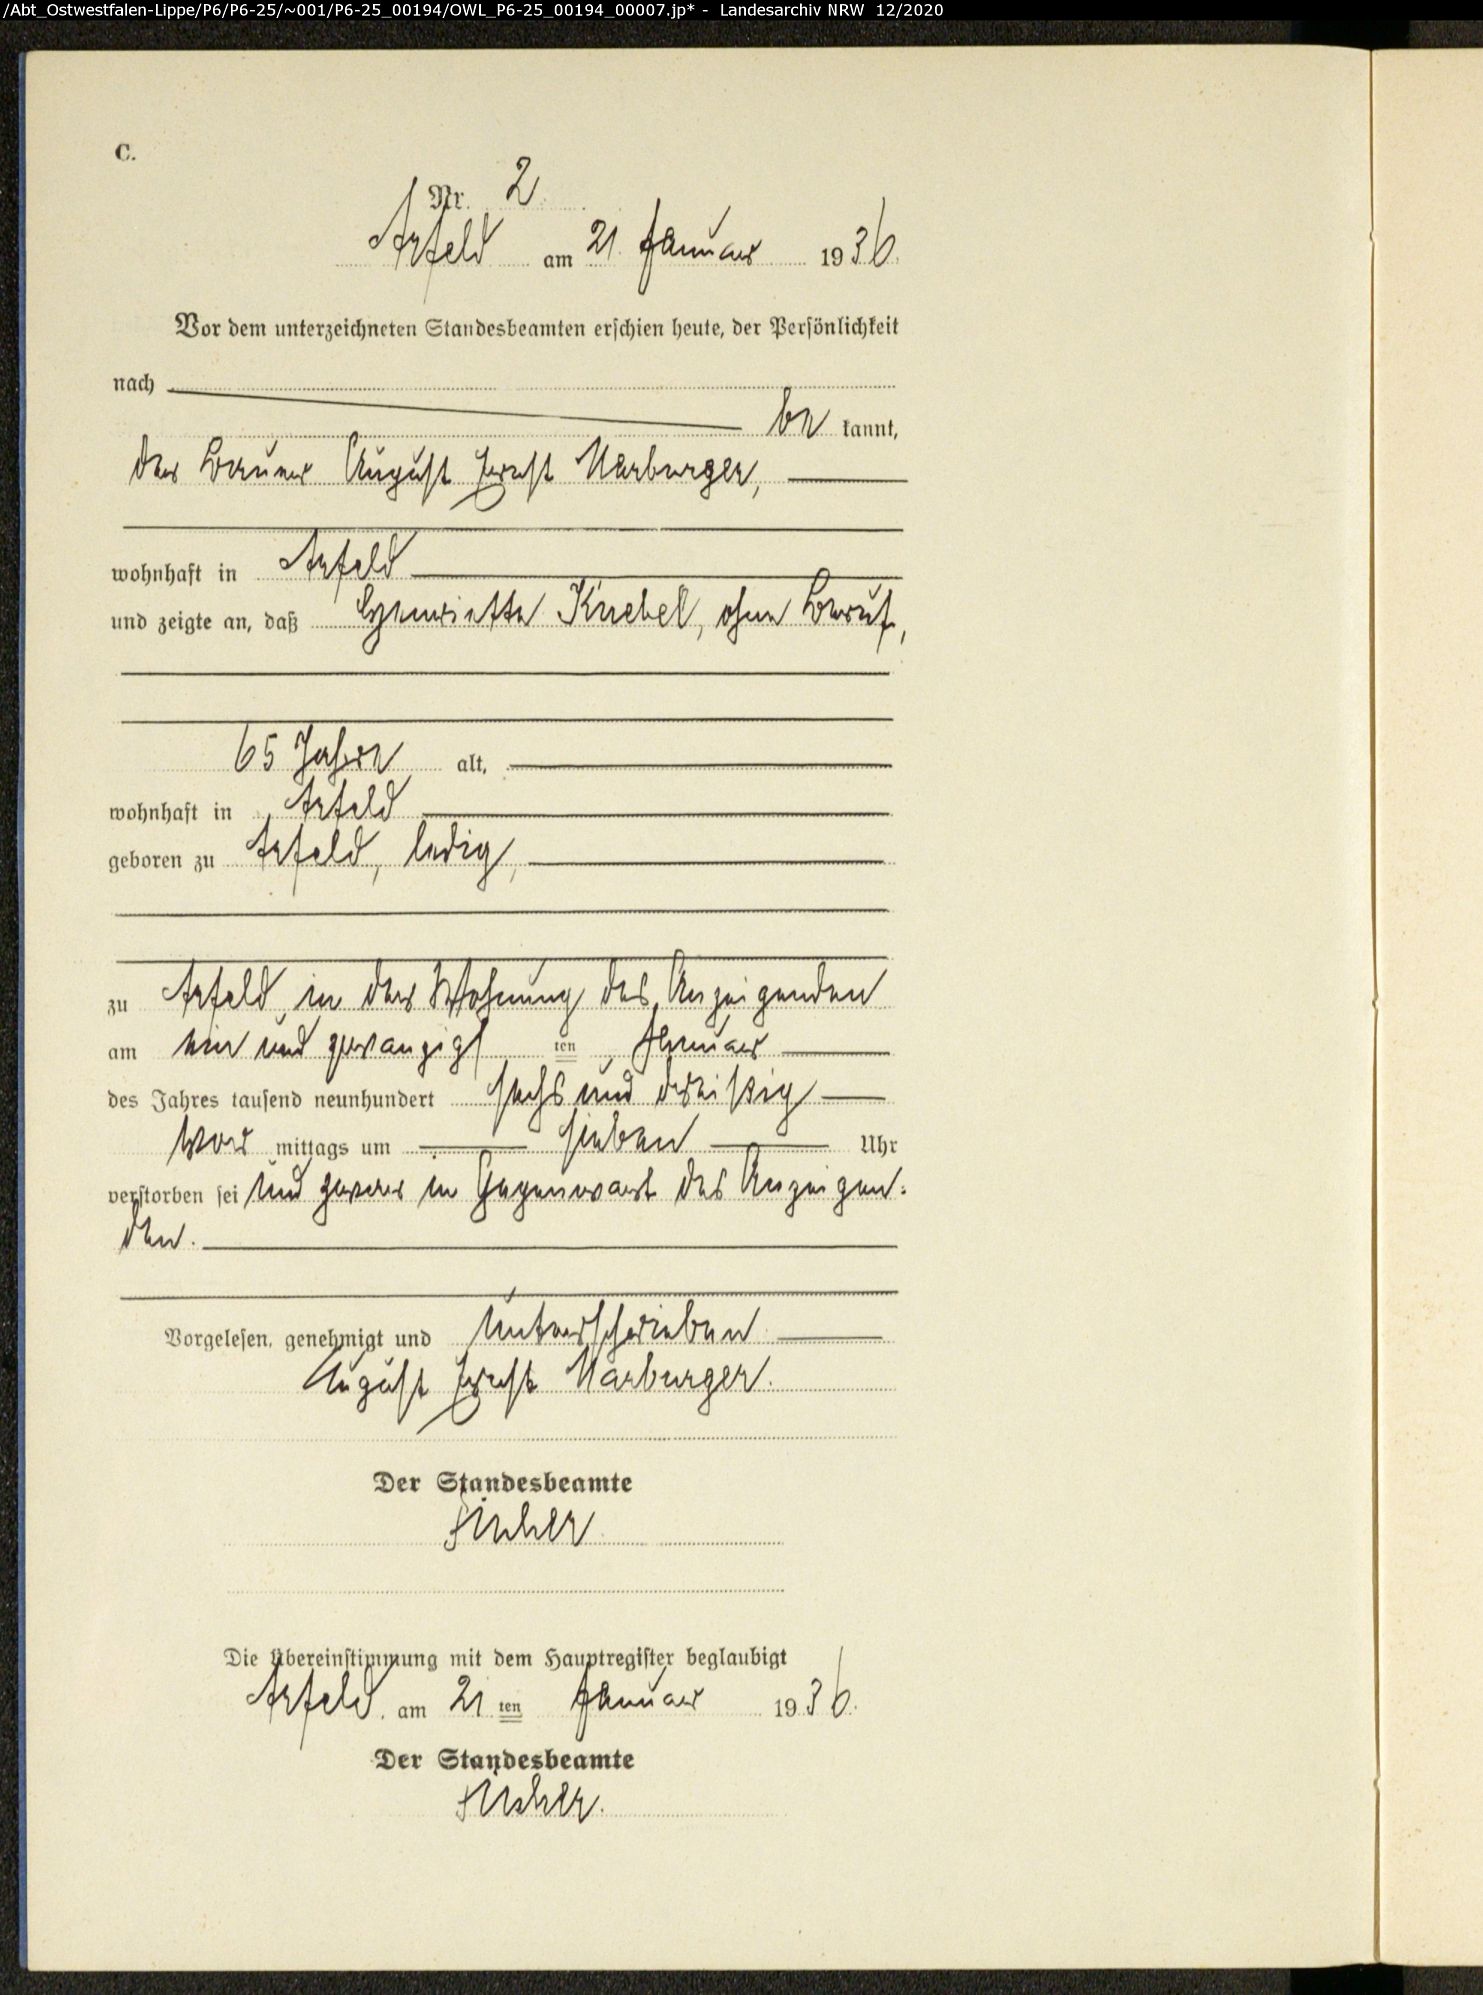 /Abt_Ostwestfalen-Lippe/P6/P6-25/~001/P6-25_00194/OWL_P6-25_00194_00007.jp* - Landesarchiv NRW 12/2020
C.
Nr. 2
Arfeld am 21. Januar 1936.
Vor dem unterzeichneten Standesbeamten erschien heute, der Persönlichkeit
nach
be kannt,
der Bauer August Ernst Marburger,
wohnhaft in Arfeld
und zeigte an, daß Henriette Knebel, ohne Beruf,
65 Jahre alt,
wohnhaft in Arfeld
geboren zu Arfeld, ledig,
zu Arfeld in der Wohnung des Anzeigenden
am ein und zwanzigs ten Januar
des Jahres tausend neunhundert sechs und dreißig
Vor mittags um sieben Uhr
verstorben sei und zwar in Gegenwart des Anzeigen-
den.
Vorgelesen, genehmigt und unterschrieben
August Ernst Marburger.
Der Standesbeamte
Die Übereinstimmung mit dem Hauptregister beglaubigt
Arfeld, am 21 ten Januar 1936.
Der Standesbeamte